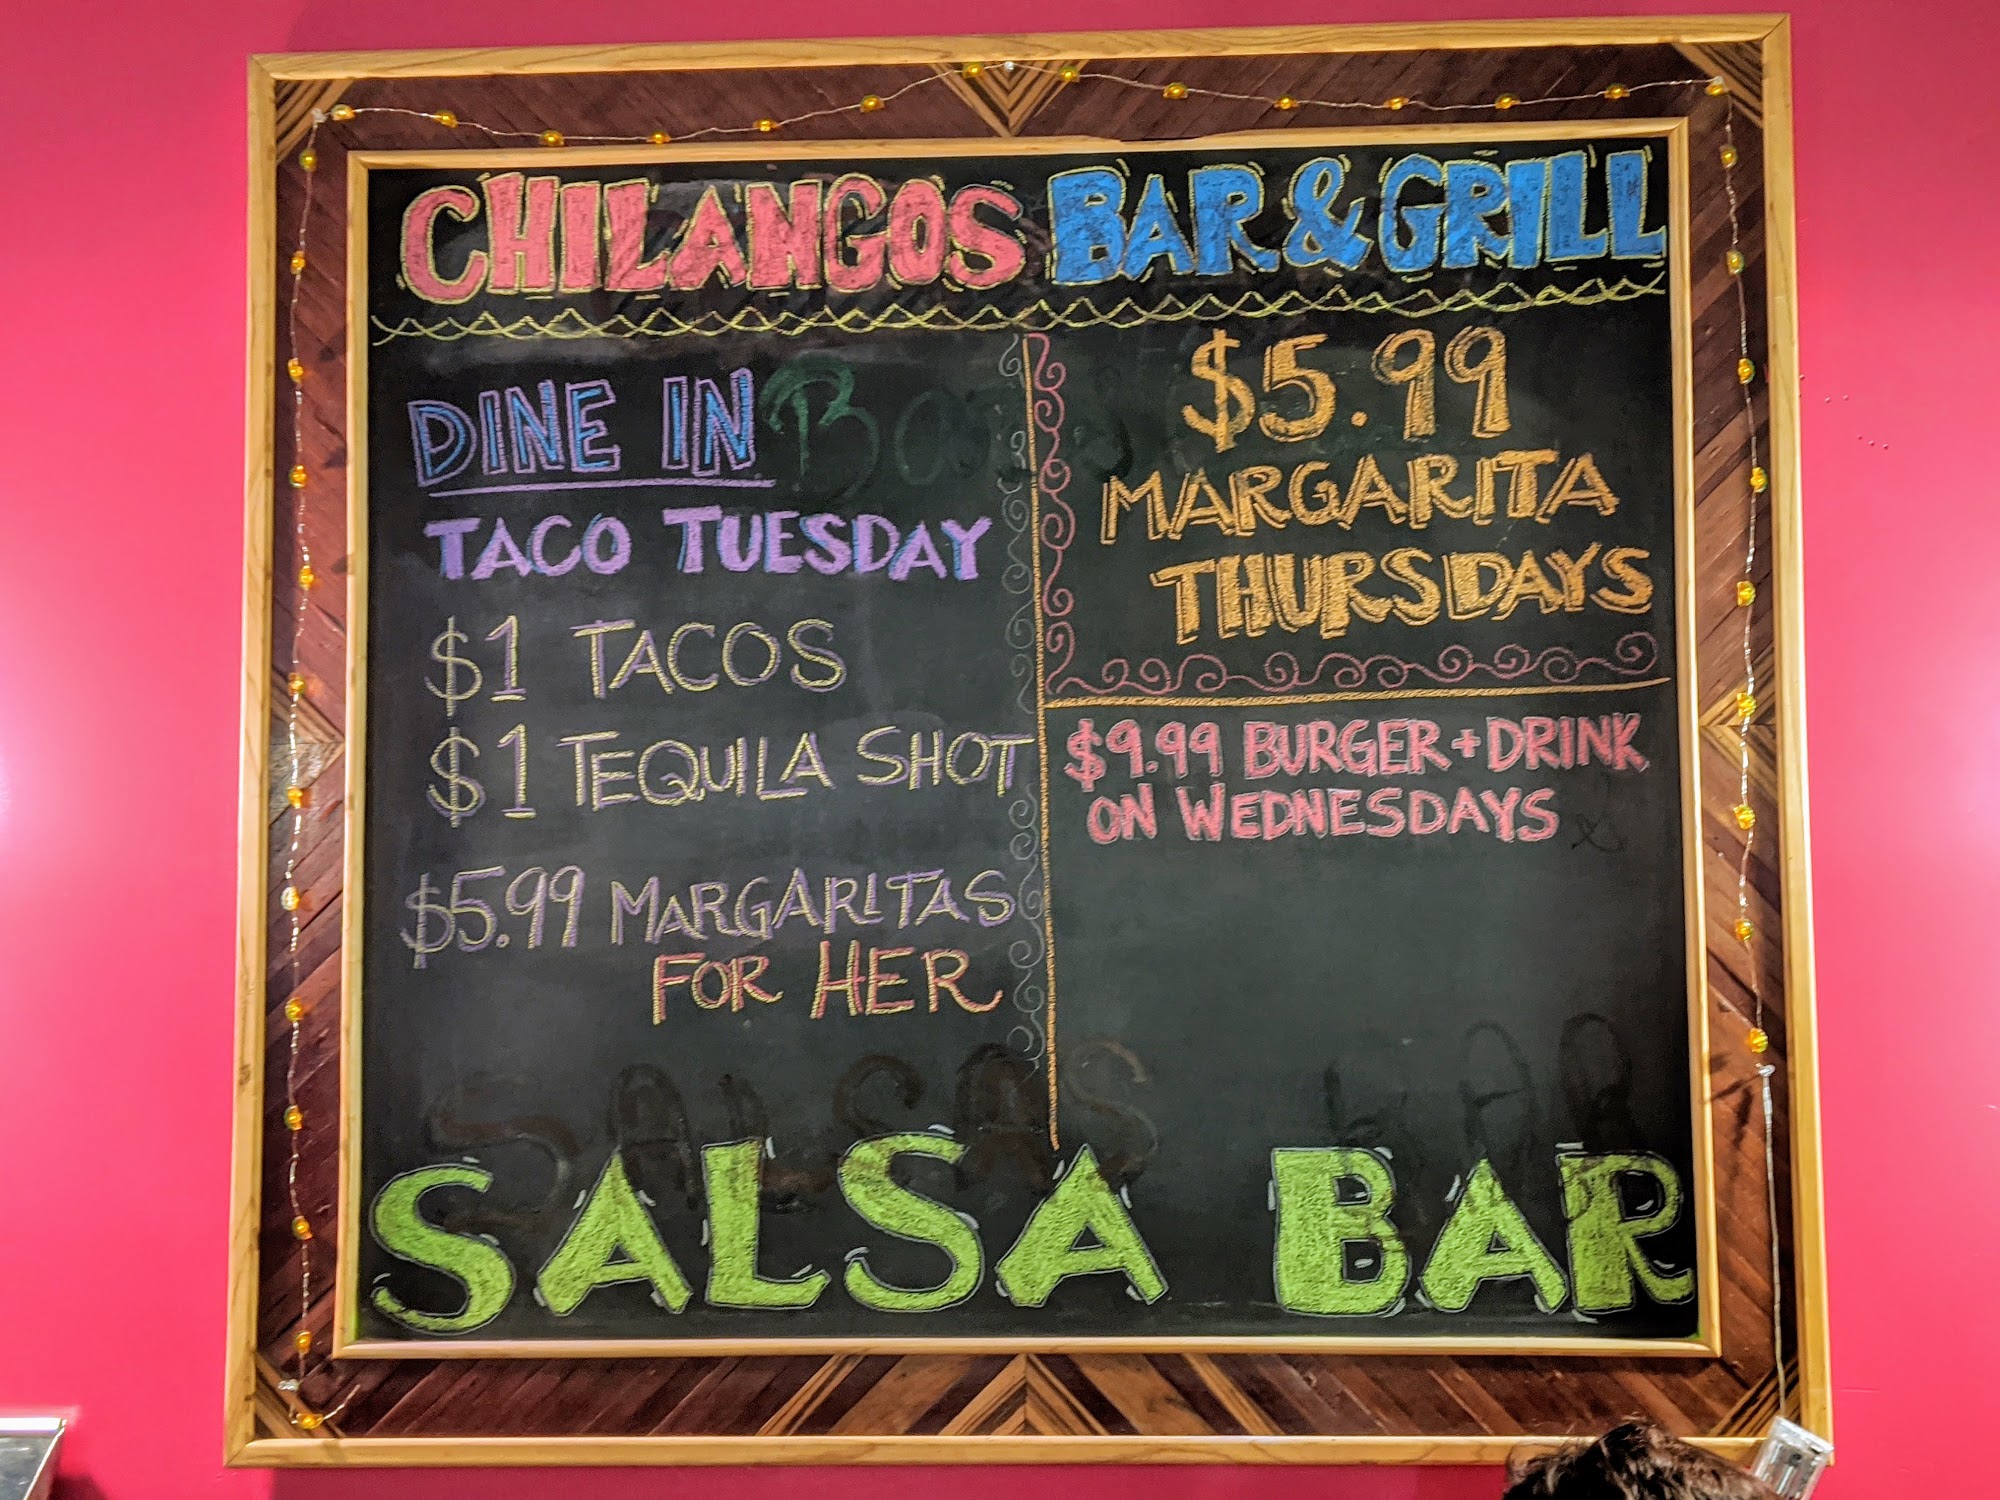 CHILANGOS BAR & GRILL
DINE IN
TACO TUESDAY
$1 TACOS
$1 TEQUILA SHOT
$5.99 MARGARITAS
FOR HER
$5.99
MARGARITA
THURSDAYS
$9.99 BURGER + DRINK
ON WEDNESDAYS
SALSA BAR